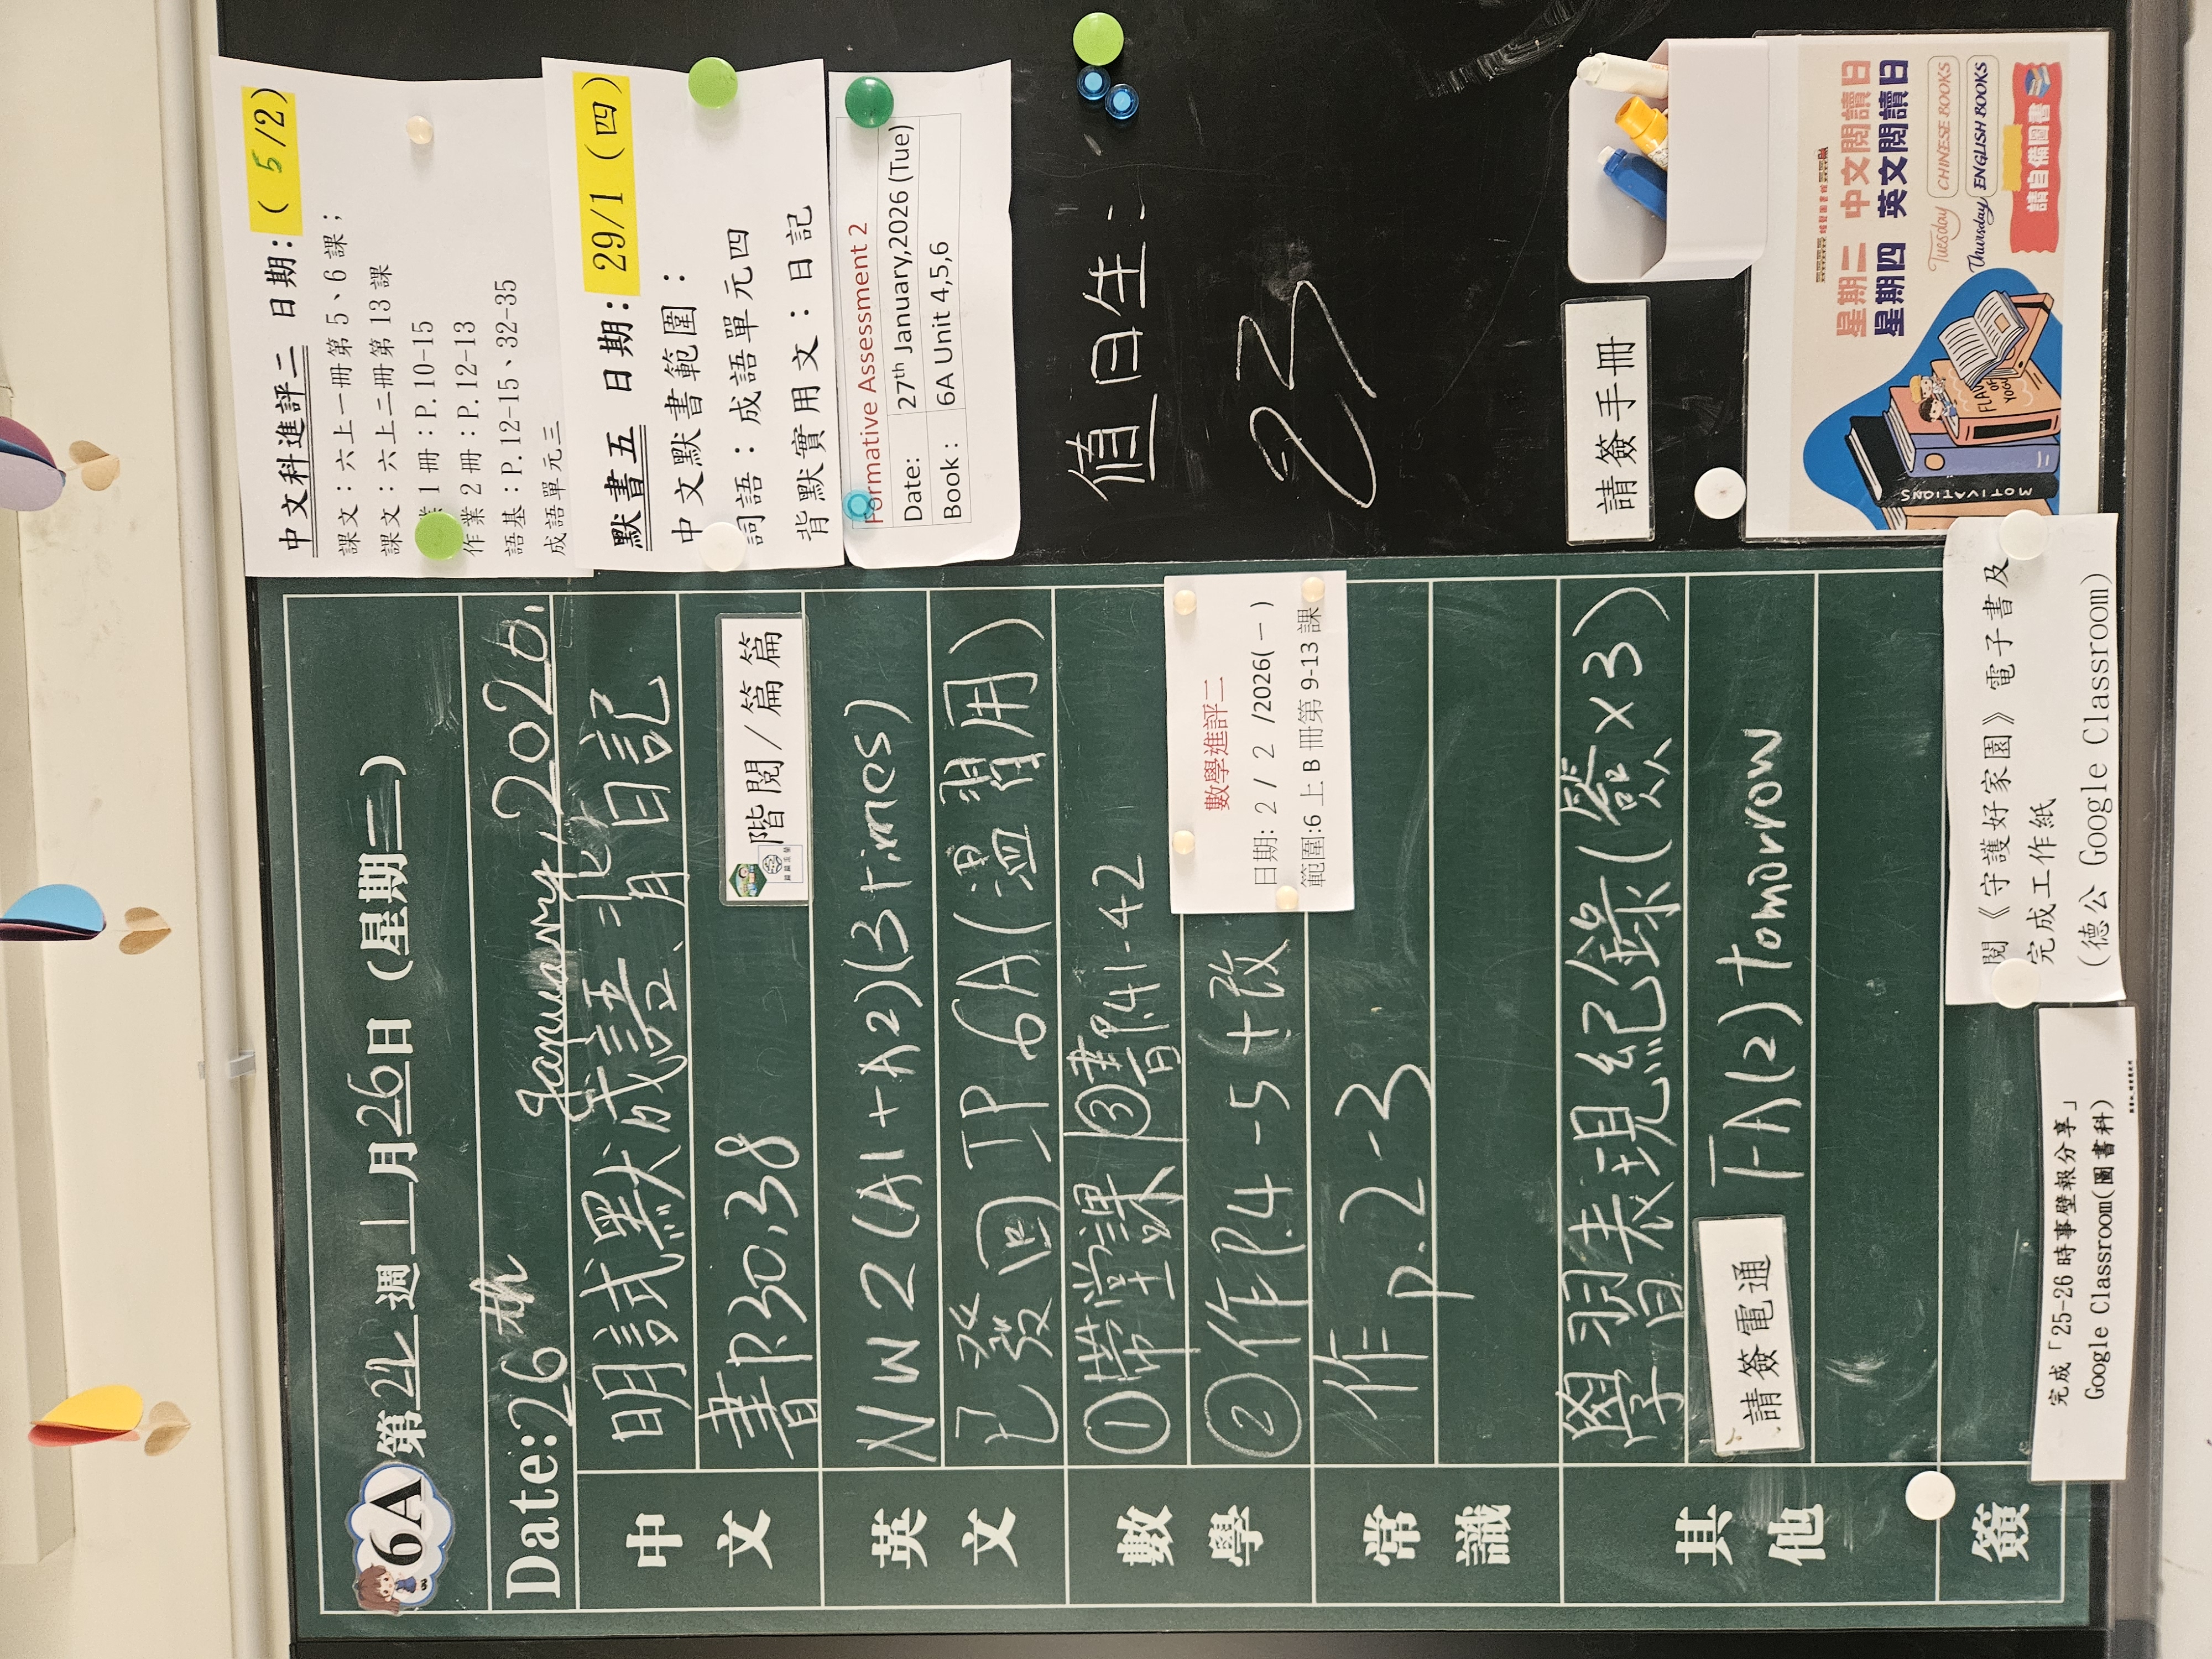 6A 第 週一月26日(星期二)
Date:26th January, 2026.
中文
明試默成語、背日記
書P.30,38
階閱/篇篇
英文
NW2(A1+A2)(3 times)
已發回IP 6A(溫習用)
數學
①帶堂課 ③書P.41-42
②作P.4-5+改
數學進評二
日期: 2 / 2 /2026(一)
範圍:6上B冊第9-13課
常識
作 P.2-3
其他
學習表現紀錄(簽x3)
請簽電通 FA(2) tomorrow
簽
完成「25-26時事壁報分享」
Google Classroom(圖書科)
閱《守護好家園》電子書及
完成工作紙
(德公 Google Classroom)
中文科進評二 日期:( 5 /2)
課文:六上一冊第5、6課;
課文:六上二冊第13課
業1冊:P.10-15
作業2冊:P.12-13
語基:P.12-15、32-35
成語單元三
默書五 日期:29/1(四)
中文默書範圍:
詞語:成語單元四
背默實用文:日記
Formative Assessment 2
Date: 27th January,2026 (Tue)
Book : 6A Unit 4,5,6
值日生:
23
請簽手冊
星期二 中文閱讀日
星期四 英文閱讀日
Tuesday CHINESE BOOKS
Thursday ENGLISH BOOKS
請自備圖書
MOTIVATIONS